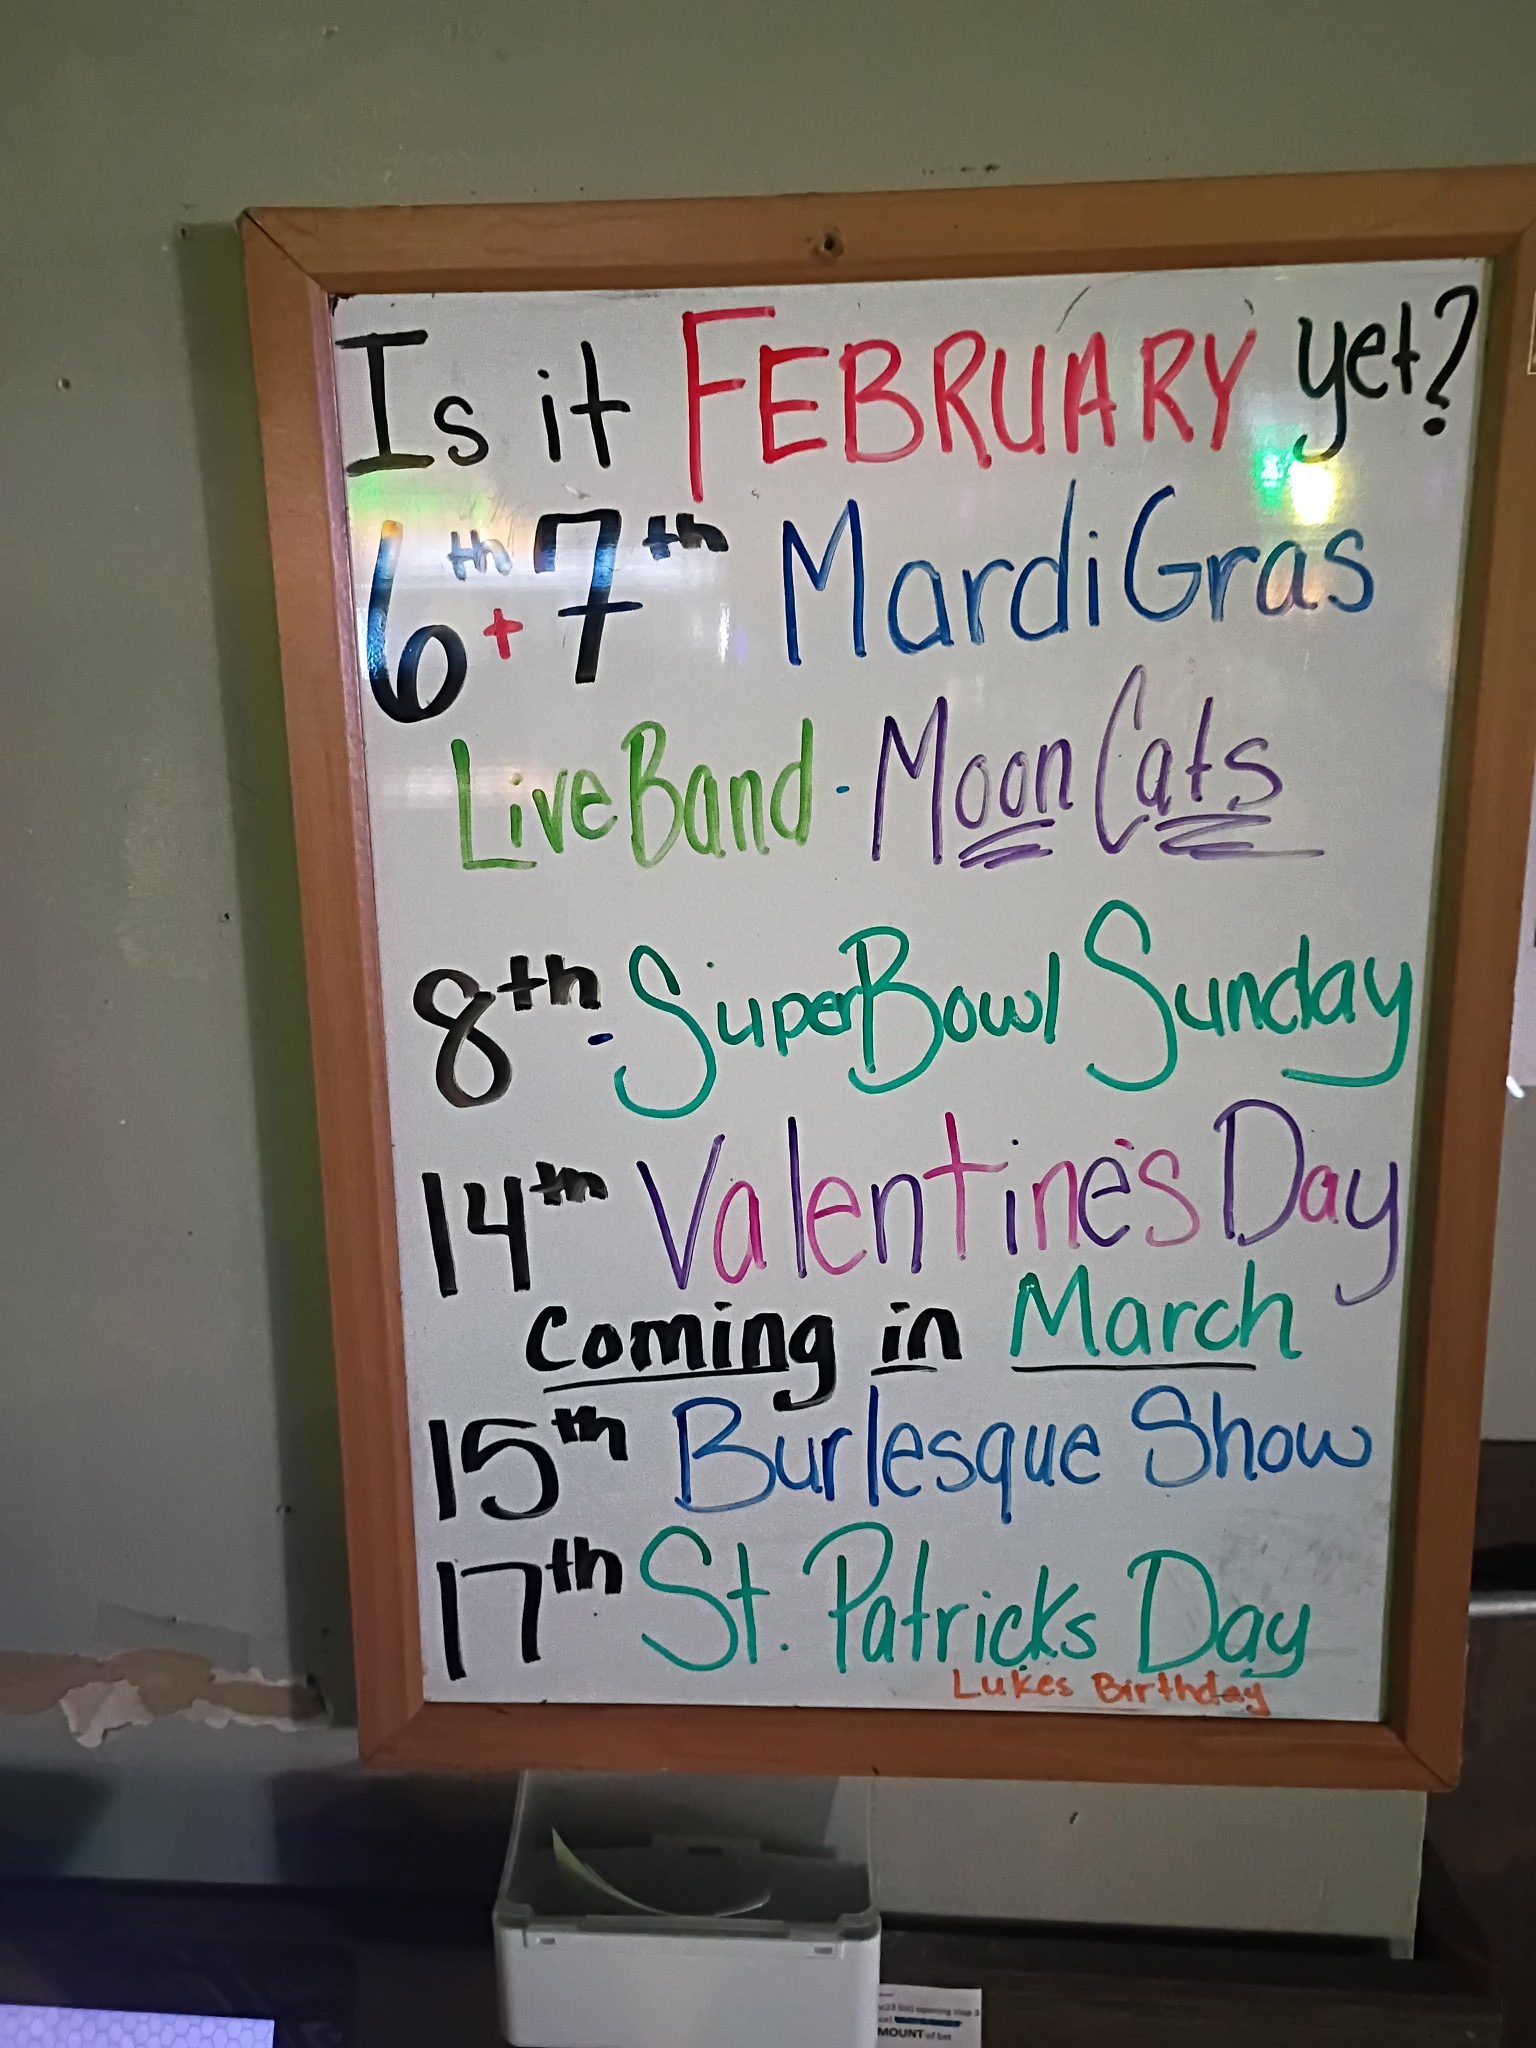 Is it FEBRUARY yet?
6th + 7th Mardi Gras
Live Band - Moon Cats
8th - SuperBowl Sunday
14th Valentine's Day
Coming in March
15th Burlesque Show
17th St. Patricks Day
Lukes Birthday
opening step 3
MOUNT of bet